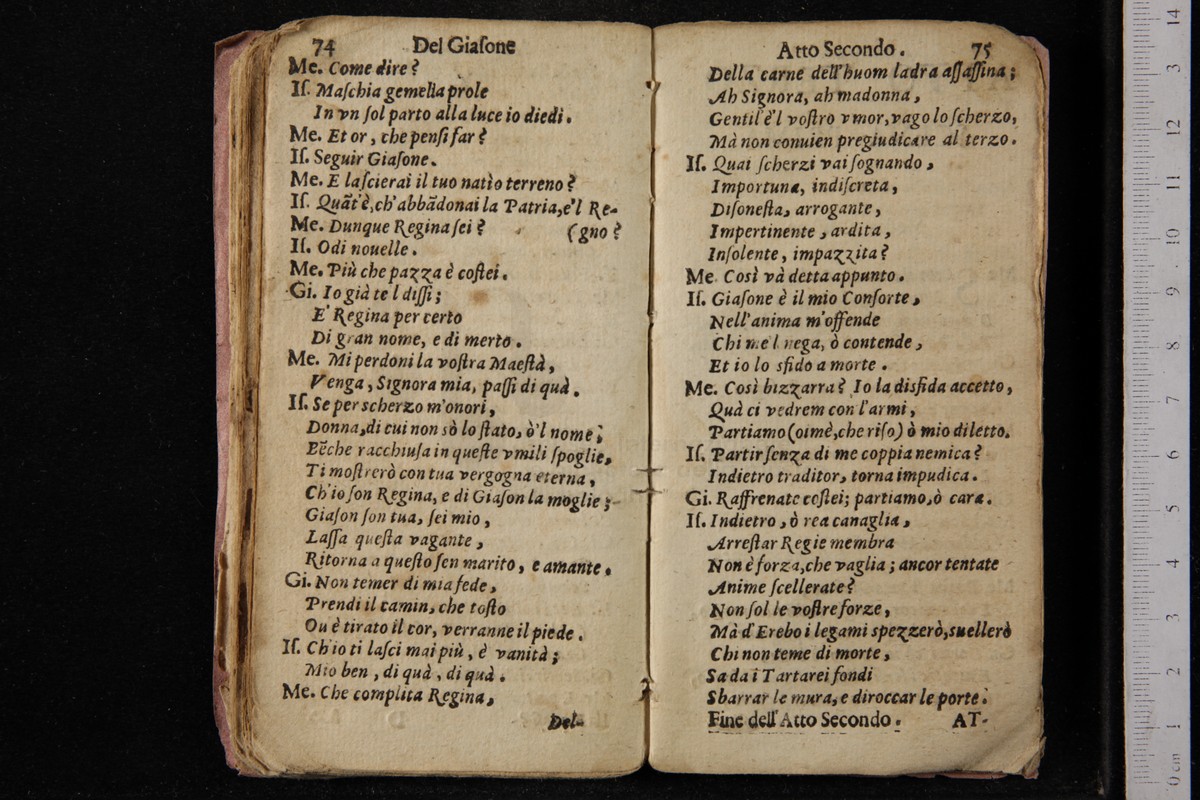 74 Del Giaſone
Me. Come dire?
Iſ. Maſchia gemella prole
In vn ſol parto alla luce io diedi.
Me. Et or, che penſi far?
Iſ. Seguir Giaſone.
Me. E laſcierai il tuo natìo terreno?
Iſ. Quãt'è, ch'abbãdonai la Patria, e'l Re-
Me. Dunque Regina ſei? (gno?
Iſ. Odi nouelle.
Me. Più che pazza è coſtei.
Gi. Io già te l diſſi;
E' Regina per certo
Di gran nome, e di merto.
Me. Mi perdoni la voſtra Maeſtà,
Venga, Signora mia, paſſi di quà.
Iſ. Se per scherzo m'onori,
Donna, di cui non sò lo ſtato, ò'l nome;
Bẽche racchiuſa in queſte vmili ſpoglie,
Ti moſtrerò con tua vergogna eterna,
Ch'io ſon Regina, e di Giaſon la moglie;
Giaſon ſon tua, ſei mio,
Laſſa queſta vagante,
Ritorna a queſto ſen marito, e amante.
Gi. Non temer di mia fede,
Prendi il camin, che toſto
Ou è tirato il cor, verranne il piede.
Iſ. Ch'io ti laſci mai più, è vanità;
Mio ben, di quà, di quà.
Me. Che complita Regina,
Del-
Atto Secondo. 75
Della carne dell'huom ladra aſſaſſina;
Ah Signora, ah madonna,
Gentil'è'l voſtro vmor, vago lo ſcherzo,
Mà non conuien pregiudicare al terzo.
Iſ. Quai ſcherzi vai ſognando,
Importuna, indiſcreta,
Diſoneſta, arrogante,
Impertinente, ardita,
Inſolente, impazzita?
Me. Così và detta appunto.
Iſ. Giaſone è il mio Conſorte,
Nell'anima m'offende
Chi me l nega, ò contende,
Et io lo sfido a morte.
Me. Così bizzarra? Io la disfida accetto,
Quà ci vedrem con l'armi,
Partiamo (oimè, che riſo) ò mio diletto.
Iſ. Partir ſenza di me coppia nemica?
Indietro traditor, torna impudica.
Gi. Raffrenate coſtei; partiamo, ò cara.
Iſ. Indietro, ò rea canaglia,
Arreſtar Regie membra
Non è forza, che vaglia; ancor tentate
Anime ſcellerate?
Non ſol le voſtre forze,
Mà d'Erebo i legami spezzerò, suellerò
Chi non teme di morte,
Sa da i Tartarei fondi
Sbarrar le mura, e diroccar le porte.
Fine dell'Atto Secondo. AT-
14
13
12
11
10
9
8
7
6
5
4
3
2
1
0 cm